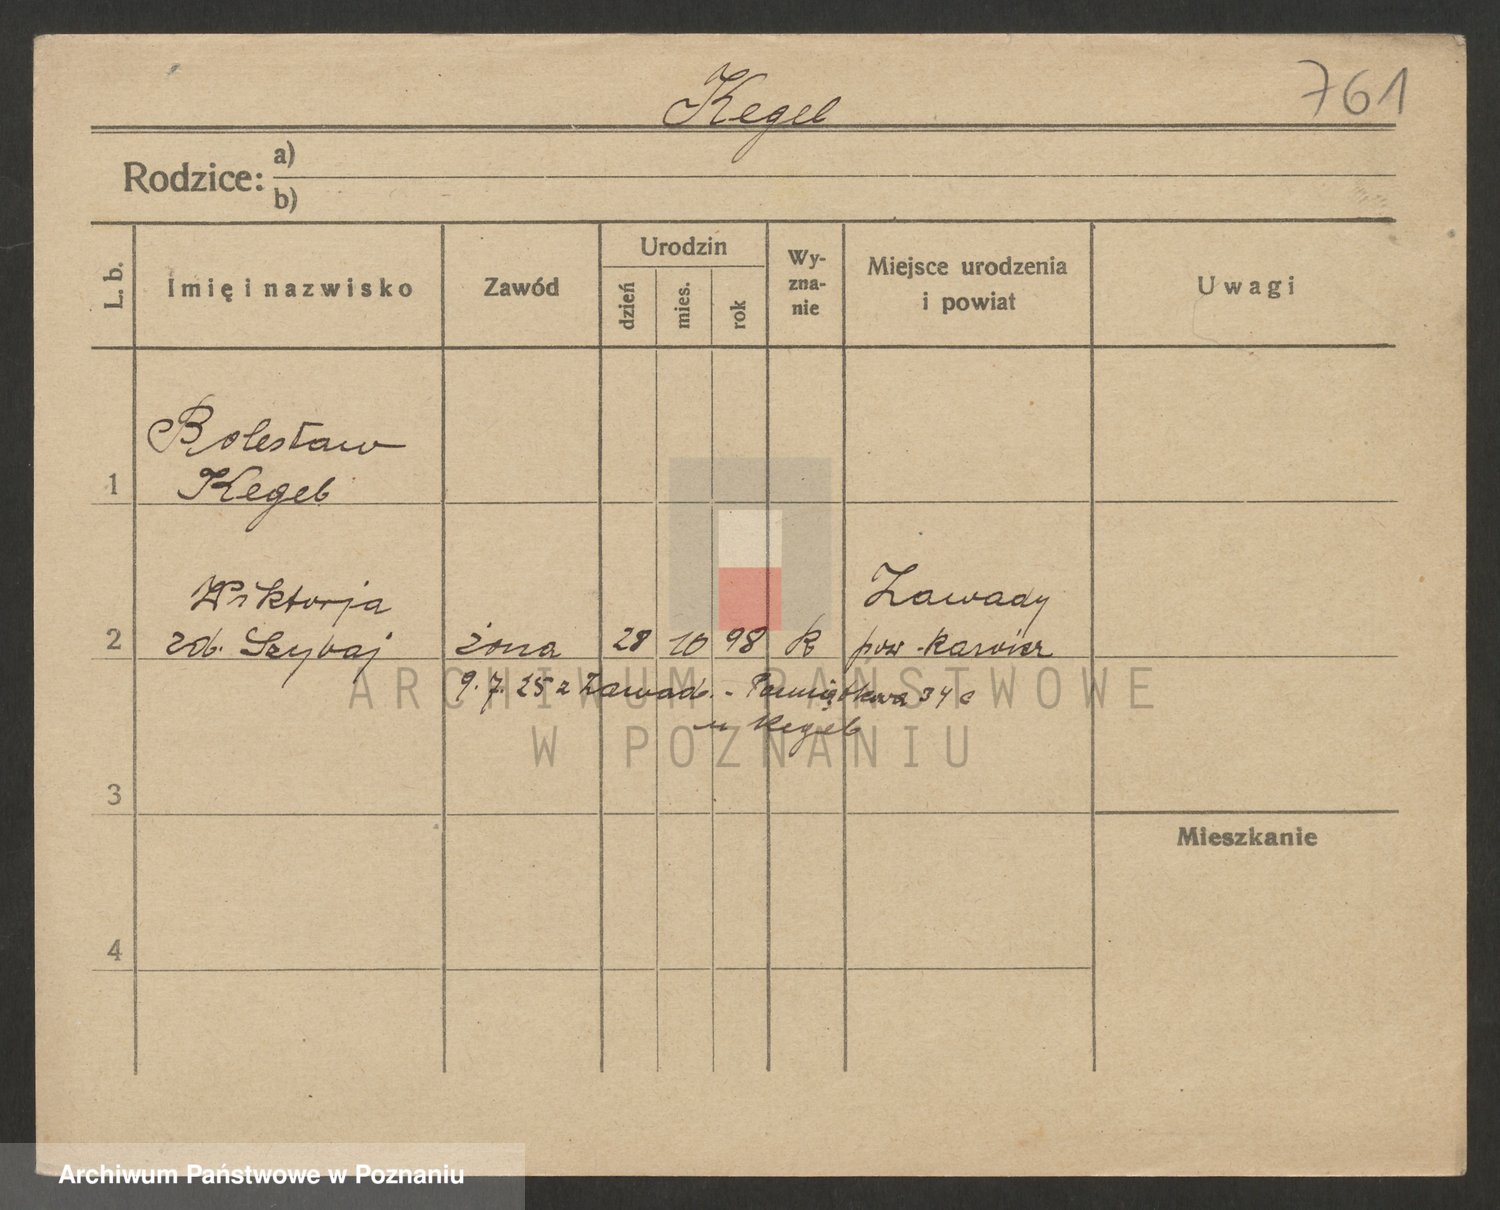 761
Kegel
Rodzice: a)
b)
L. b.
Imię i nazwisko
Zawód
Urodzin
dzień
mies.
rok
Wy-
zna-
nie
Miejsce urodzenia
i powiat
Uwagi
Bolesław
1 Kegel
Wiktorja
Zawady
2 zd. Szybaj żona 28 10 98 k pow.
9. 7. 25 z Zawad. - Pamiątkowa 34 c
u Kegel
3
Mieszkanie
4
ARCHIWUM PAŃSTWOWE
W POZNANIU
Archiwum Państwowe w Poznaniu